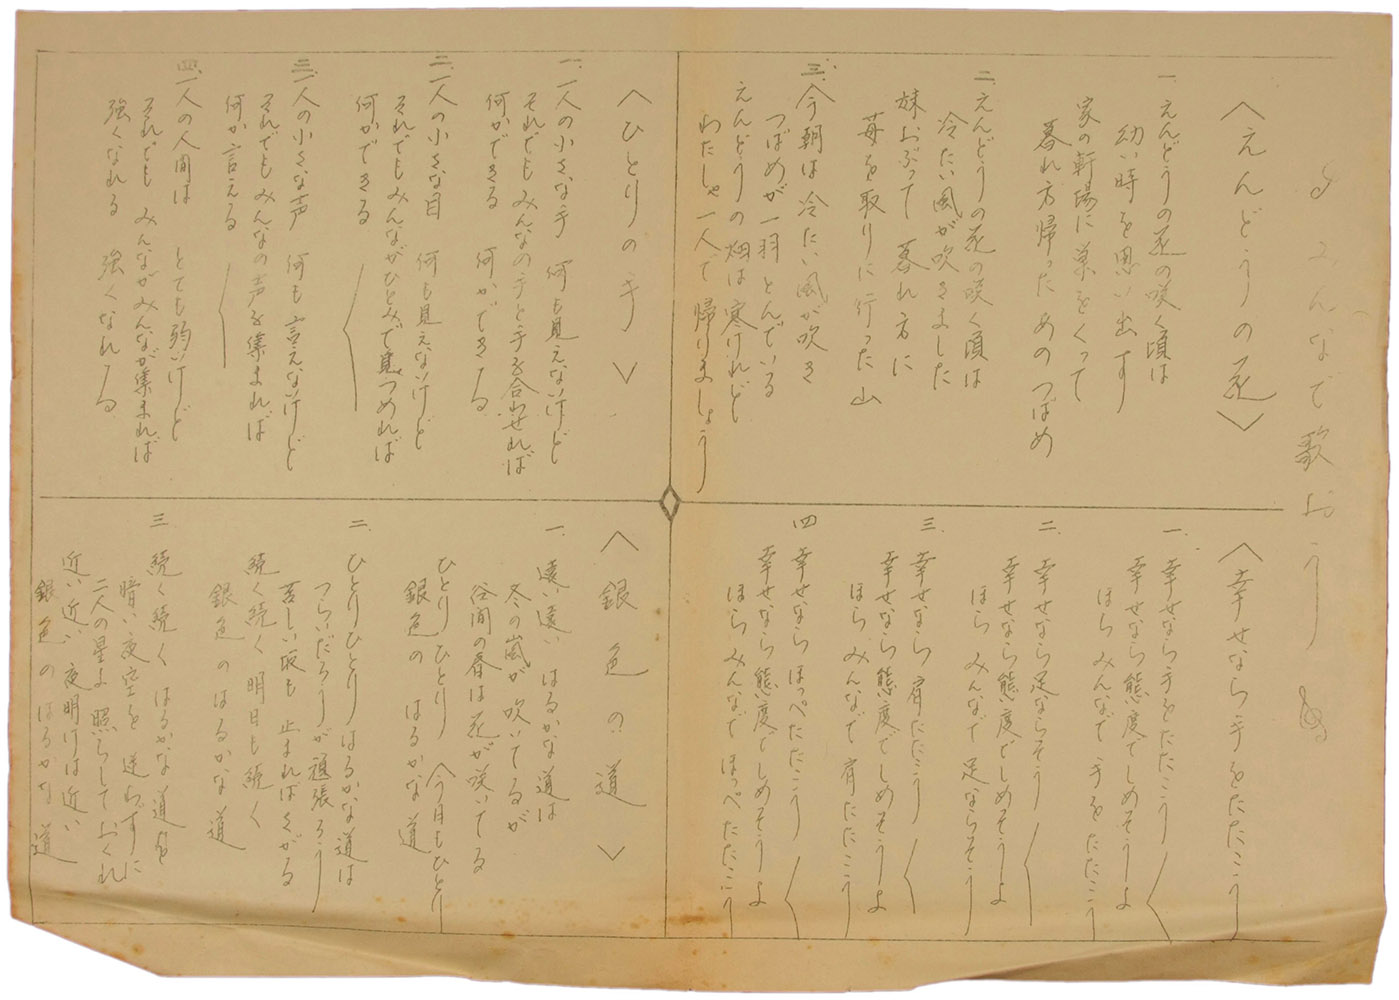 みんなで歌おう
〈えんどうの花〉
一 えんどうの花の咲く頃は
幼い時を思い出す
家の軒場に巣をくって
暮れ方帰ったあのつばめ
二 えんどうの花の咲く頃は
冷たい風が吹きました
妹おぶって 暮れ方に
苺を取りに行った山
三 今朝は冷たい風が吹き
つばめが一羽とんでいる
えんどうの畑は寒けれど
わたしゃ一人で帰りましょう
〈幸せなら手をたたこう
一、幸せなら手をたたこう
幸せなら態度でしめそうよ
ほら みんなで 手をたたこう
二、幸せなら足ならそう
幸せなら態度でしめそうよ
ほら みんなで 足ならそう
三、幸せなら肩たたこう
幸せなら態度でしめそうよ
ほら、みんなで 肩たたこう
四 幸せなら ほっぺたたこう
幸せなら態度でしめそうよ
ほら みんなで ほっぺたたこう
〈ひとりの手〉
一、一人の小さな手 何も見えないけど
それでもみんなの手と手を合わせれば
何かできる 何かできる
二、一人の小さな目 何も見えないけど
それでもみんながひとみで見つめれば
何かできる
三、一人の小さな声 何も言えないけど
それでもみんなの声を集まれば
何か言える
四、一人の人間は とても弱いけど
それでも みんながみんなが集まれば
強くなれる 強くなれる
〈銀色の道〉
一、遠い遠い はるかな道は
冬の嵐が 吹いてるが
谷間の春は花が咲いてる
ひとり ひとり 今日もひとり
銀色の はるかな道
二 ひとりひとり はるかな道は
つらいだろうが 頑張ろう
苦しい坂も 止まれば くがる
続く続く 明日も続く
銀色 の はるかな道
三 続く続く はるかな道を
暗い夜空を 迷わずに
二人の星よ 照らしておくれ
近い近い 夜明けは近い
銀色 の はるかな道